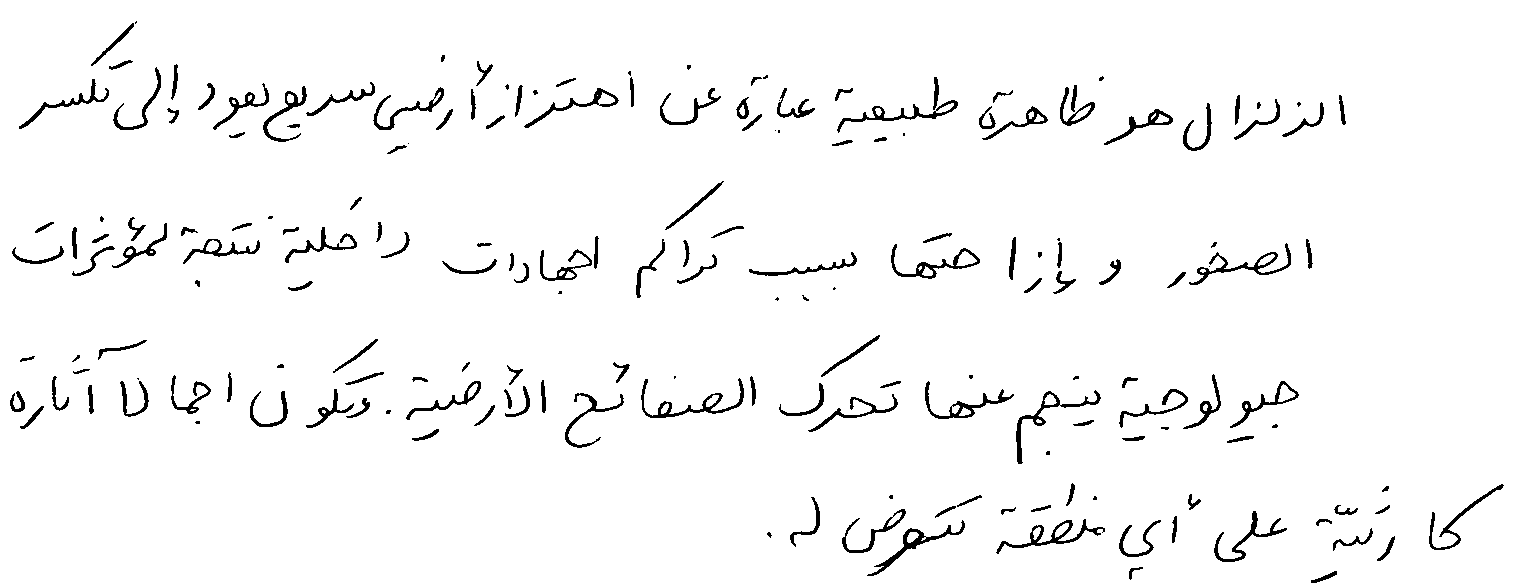 الزلزال هو ظاهرة طبيعية عبارة عن اهتزاز أرضي سريع يعود إلى تكسر
الصخور وإزاحتها بسبب تراكم اجهادات داخلية نتيجة لمؤثرات
جيولوجية ينجم عنها تحرك الصفائح الأرضية. وتكون اجمالا آثارة
كارثيّة على أي منطقة تتعرض له.